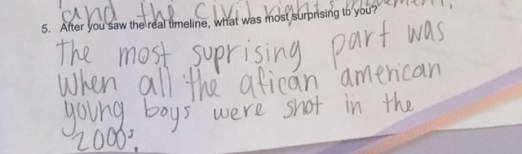 and the civil rights movement.
5. After you saw the real timeline, what was most surprising to you?
The most suprising part was
when all the afican american
young boys were shot in the
2000s.